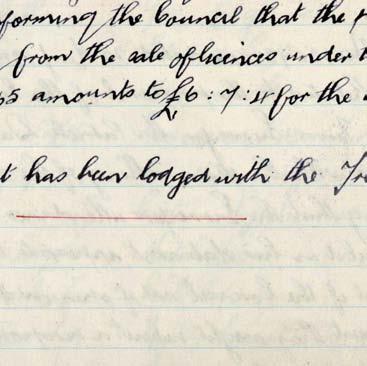 forming the Council that the
from the sale of licences under
65 amounts to £6 : 7 : 4 for the
t has been lodged with the Tre